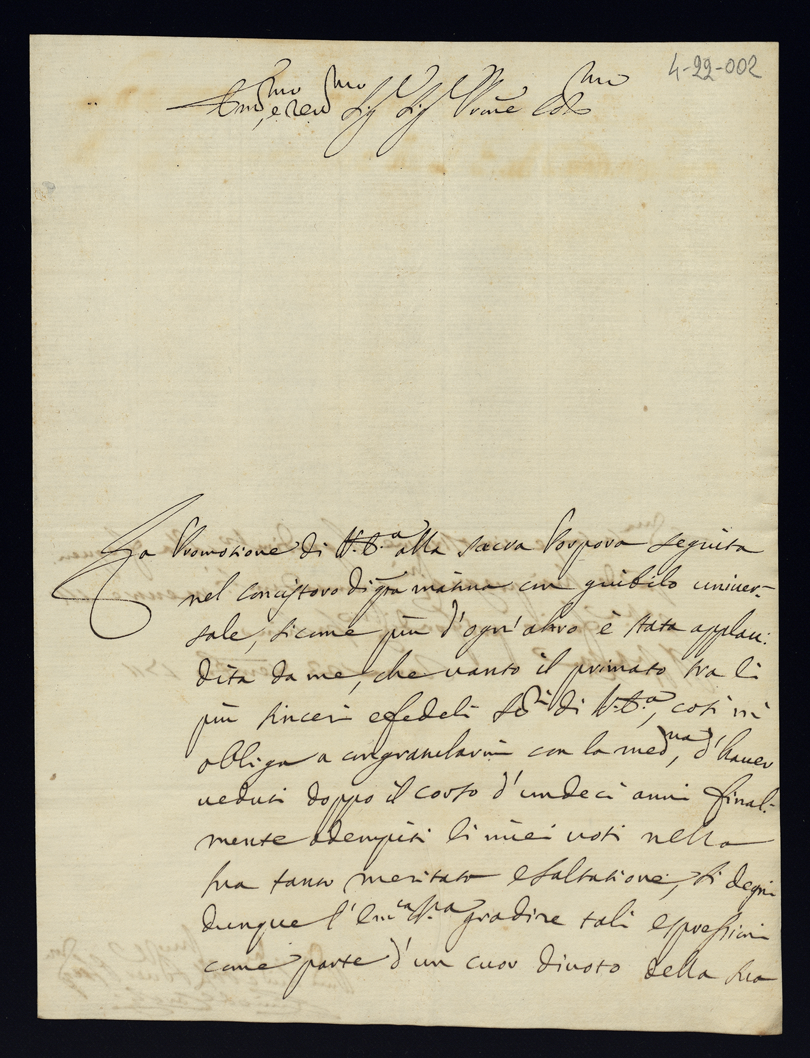 4-22-002
Em.mo e Rev.mo Sig.r Sig.r P'rone Col.mo
La Promotione di V.E.a alla sacra Porpora seguita
nel concistoro di q'sta matina con giubilo univer-
sale, sicome più d'ogn'altro è stata applau-
dita da me, che vanto il primato tra li
più sinceri e fedeli Se.ri di V.E.a, così mi
obliga a congratularmi con la med.ma, d'haver
veduti doppo il corso d'undeci anni final-
mente adempiti li miei voti nella
sua tanto meritata esaltatione, si degni
dunque l'Em.za V.ra gradire tali espressioni
come parte d'un cuor divoto della sua